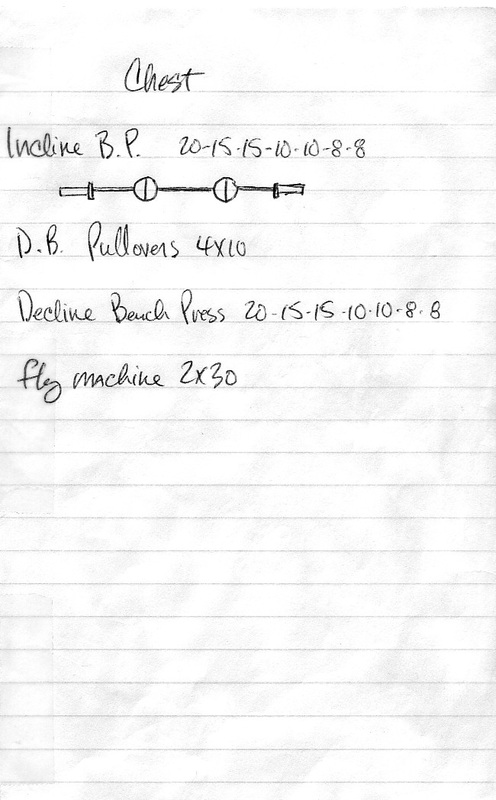 Chest
Incline B.P. 20-15-15-10-10-8-8
D.B. Pullovers 4x10
Decline Bench Press 20-15-15-10-10-8-8
fly machine 2x30